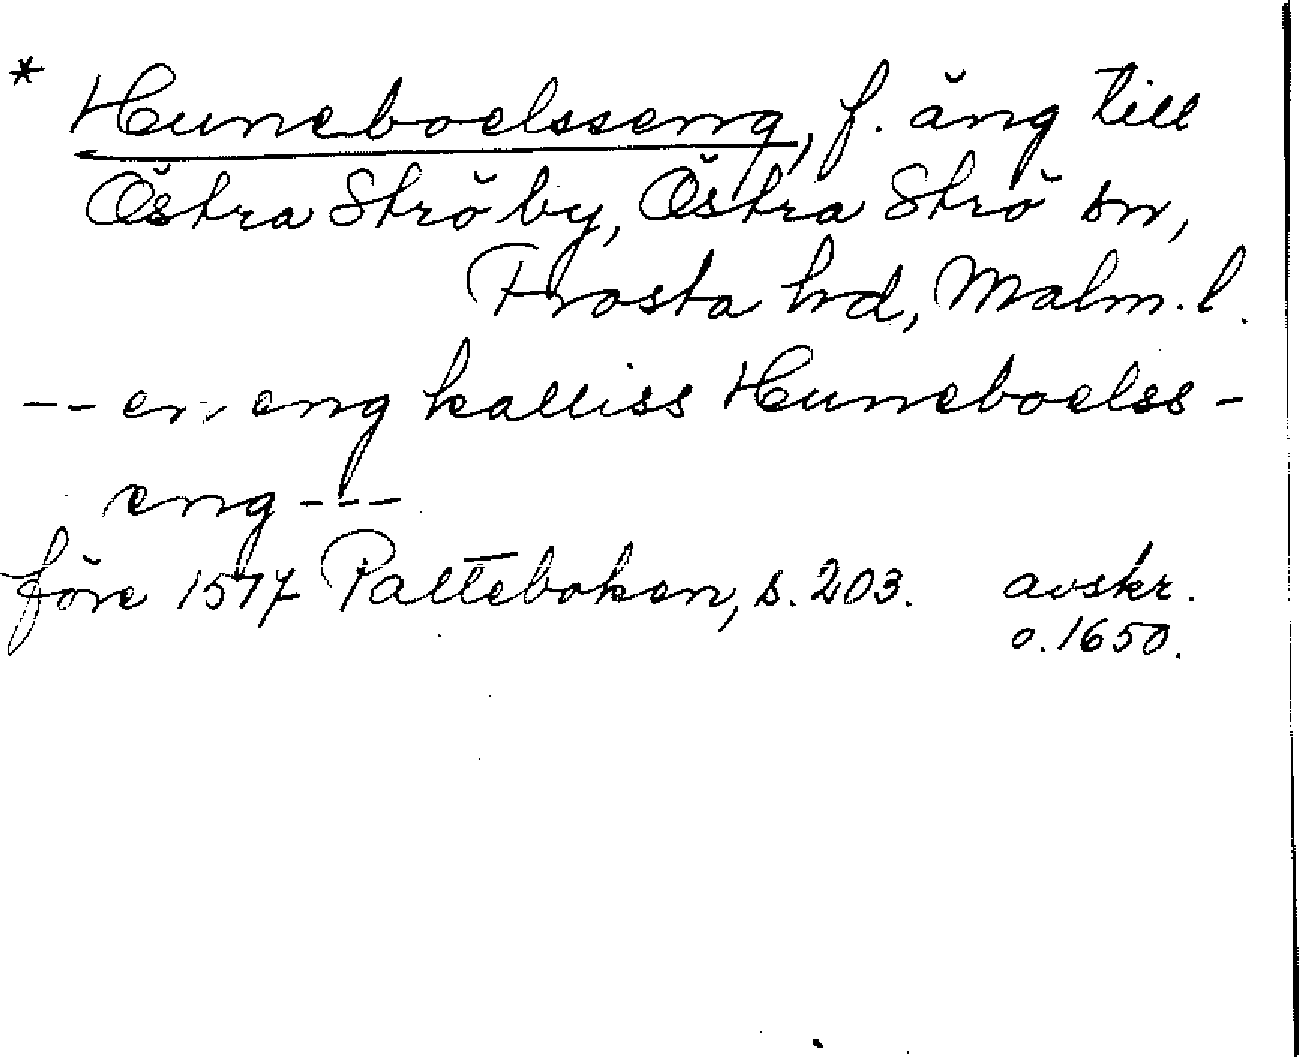 * Huneboelsseng, f. äng till
Östra Strö by, Östra Strö sn,
Frosta hd, Malm. l.
-- en eng kalliss Huneboelss-
eng ---
före 1577 Palteboken, s. 203. avskr.
o. 1650.